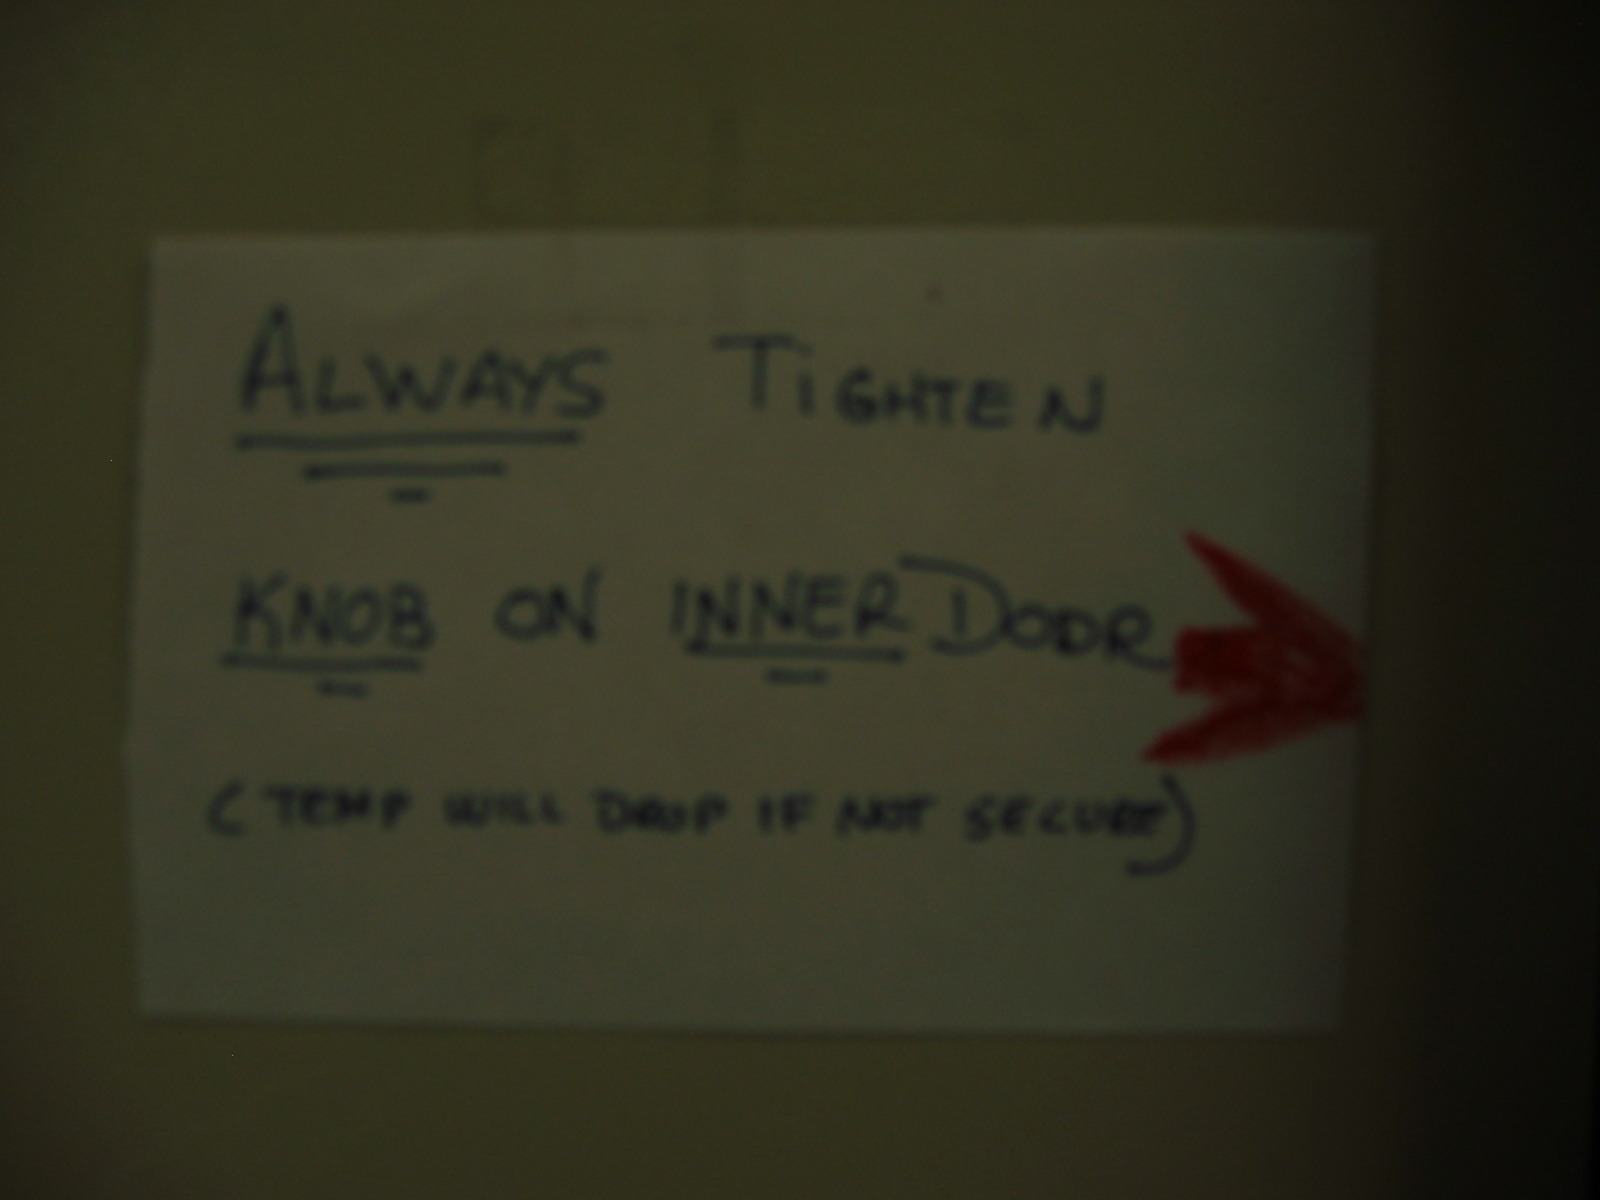 ALWAYS TiGHTEN
KNOB ON INNER DOOR
(TEMP WILL DROP IF NOT SECURE)